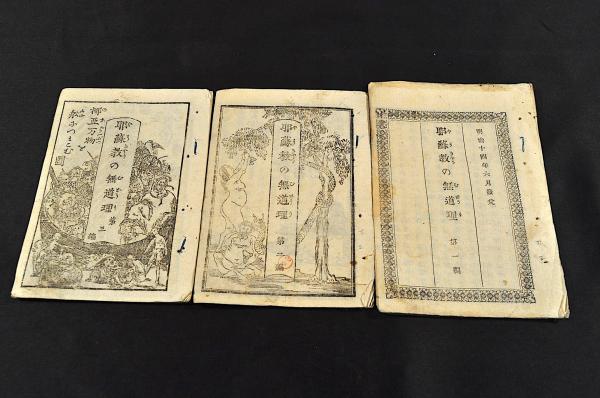 明治十四年六月發兌
耶蘇教の無道理 第一編
耶蘇教の無道理 第二編
耶蘇教の無道理 第三編
万物を